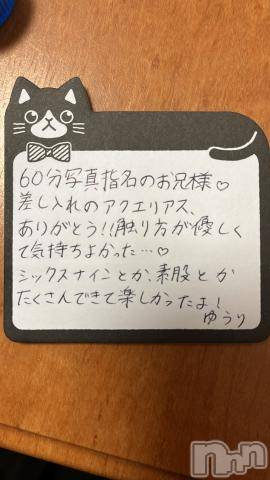 60分写真指名のお兄様♡
差し入れのアクエリアス、
ありがとう!!触り方が優しく
て気持ちよかった…♡
シックスナインとか、素股とか
たくさんできて楽しかったよ!
ゆうり
Nnn